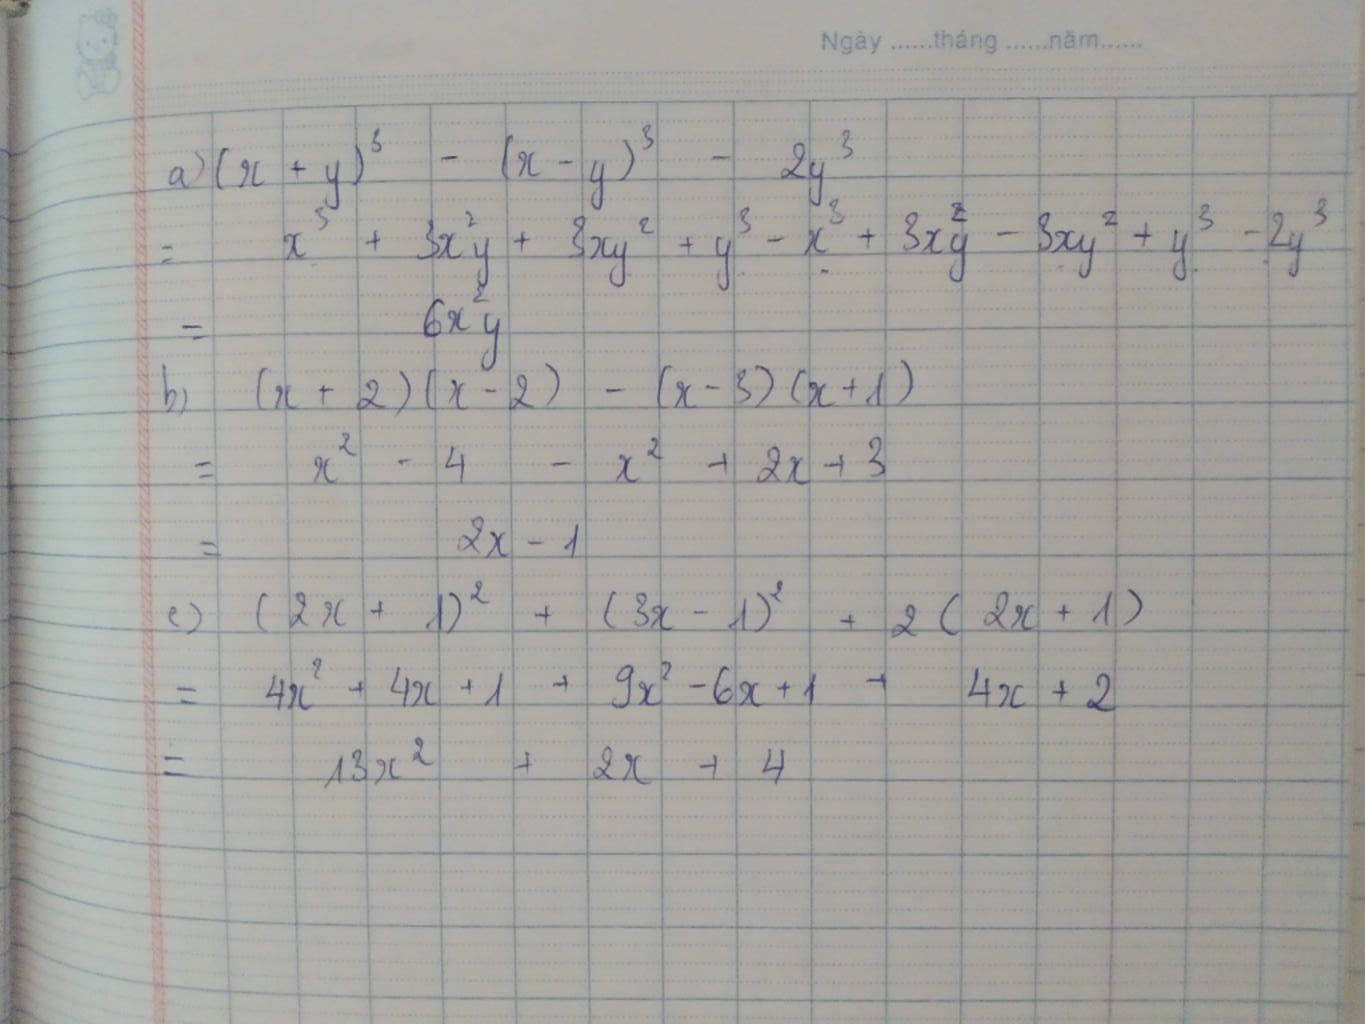 Ngày ......tháng ......năm......
a) (x + y)³ - (x - y)³ - 2y³
= x³ + 3x²y + 3xy² + y³ - x³ + 3x²y - 3xy² + y³ - 2y³
= 6x²y
b) (x + 2)(x - 2) - (x - 3)(x + 1)
= x² - 4 - x² + 2x + 3
= 2x - 1
c) (2x + 1)² + (3x - 1)² + 2(2x + 1)
= 4x² + 4x + 1 + 9x² - 6x + 1 + 4x + 2
= 13x² + 2x + 4